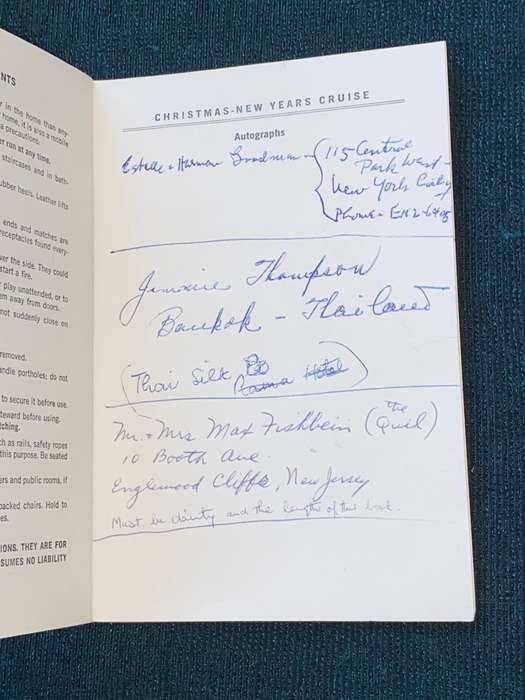 NTS
r in the home than any-
home, it is also a mobile
a precautions.
er run at any time.
staircases and in bath-
ubber heels. Leather lifts
ends and matches are
receptacles found every-
ver the side. They could
start a fire.
play unattended, or to
em away from doors.
not suddenly close on
removed.
andle portholes; do not
to secure it before use.
teward before using.
tching.
ch as rails, safety ropes
this purpose. Be seated
ers and public rooms, if
packed chairs. Hold to
es.
IONS. THEY ARE FOR
SUMES NO LIABILITY
CHRISTMAS-NEW YEARS CRUISE
Autographs
Estelle + Herman Goodman - 115 Central
Park West -
New York City
Phone - EN2-6408
Jimmie Thompson
Bankok - Thailand
(Thai Silk Co)
Mr. + Mrs Max Fishbein (the Quiel)
10 Booth Ave.
Englewood Cliffs, New Jersey
Must be dainty and the length of this book.